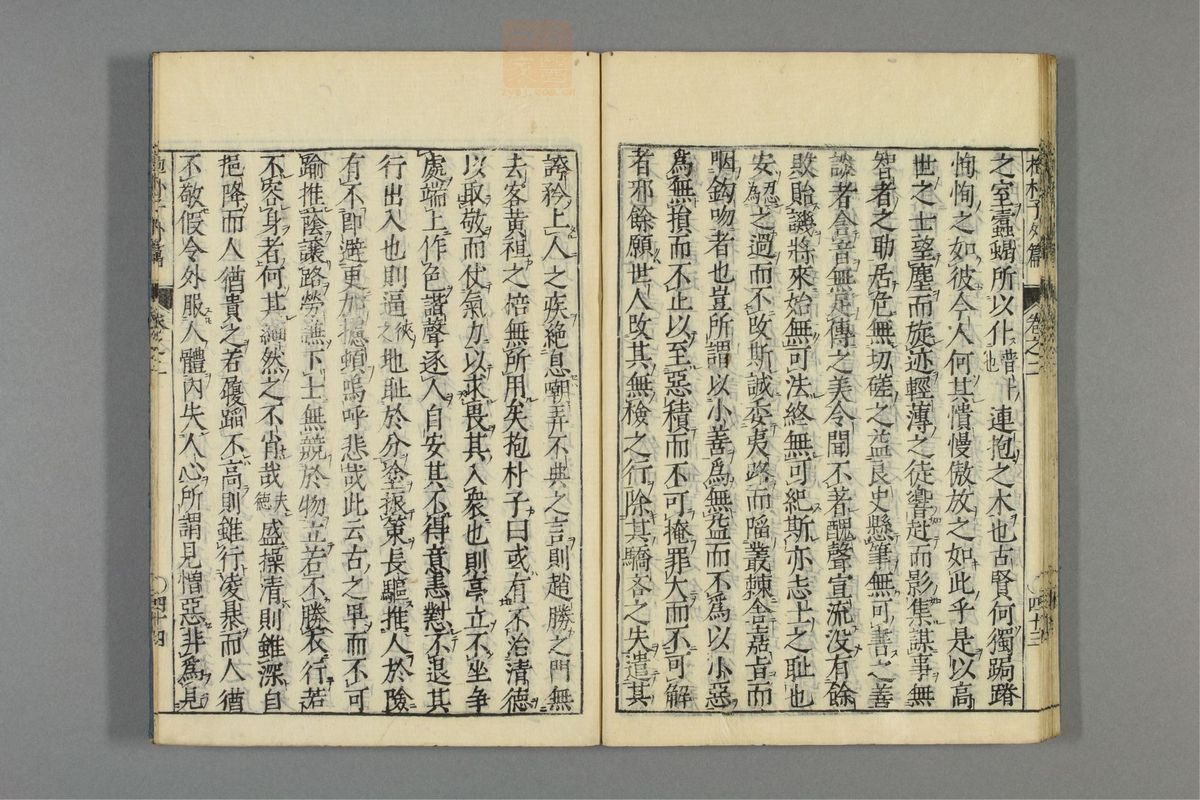 之室蠹蝎所以仆音卜也連抱之木也古賢何獨跼蹐
恂恂之如彼今人何其憒慢傲放之如此乎是以高
世之士望塵而旋迹輕薄之徒響赴而影集謀事無
智者之助居危無切磋之益良史懸筆無可書之善
談者含音無足傳之美令聞不著醜聲宣流没有餘
敗貽譏將來始無可法終無可紀斯亦志士之耻也
安忍為之過而不改斯誠委夷路而陷叢棘舍嘉旨而
咽鈎吻者也豈所謂以小善爲無益而不爲以小惡
爲無損而不止以至惡積而不可掩罪大而不可解
者邪餘願世人改其無檢之行除其驕吝之失遣其
誇矜上人之疾絶息嘲弄不典之言則趙勝之門無
去客黄祖之棓無所用矣抱朴子曰或有不治清德
以取敬而仗氣力以求畏其入衆也則亭立不坐争
處端上作色諧聲逐人自安其不得意恚懟不退其
行出入也則逼狹之地耻於分塗振策長驅推人於險
有不即避更加攄頓嗚呼悲哉此云古之卑而不可
踰推蔭讓路勞謙下士無競於物立若不勝衣行若
不容身者何其緬然之不肖哉夫德盛操清則雖深自
挹降而人猶貴之若履蹈不高則雖行凌暴而人猶
不敬假令外服人體内失人心所謂見憎惡非爲見
抱朴子外篇
卷之二
四十三
抱朴子外篇
卷之二
四十四